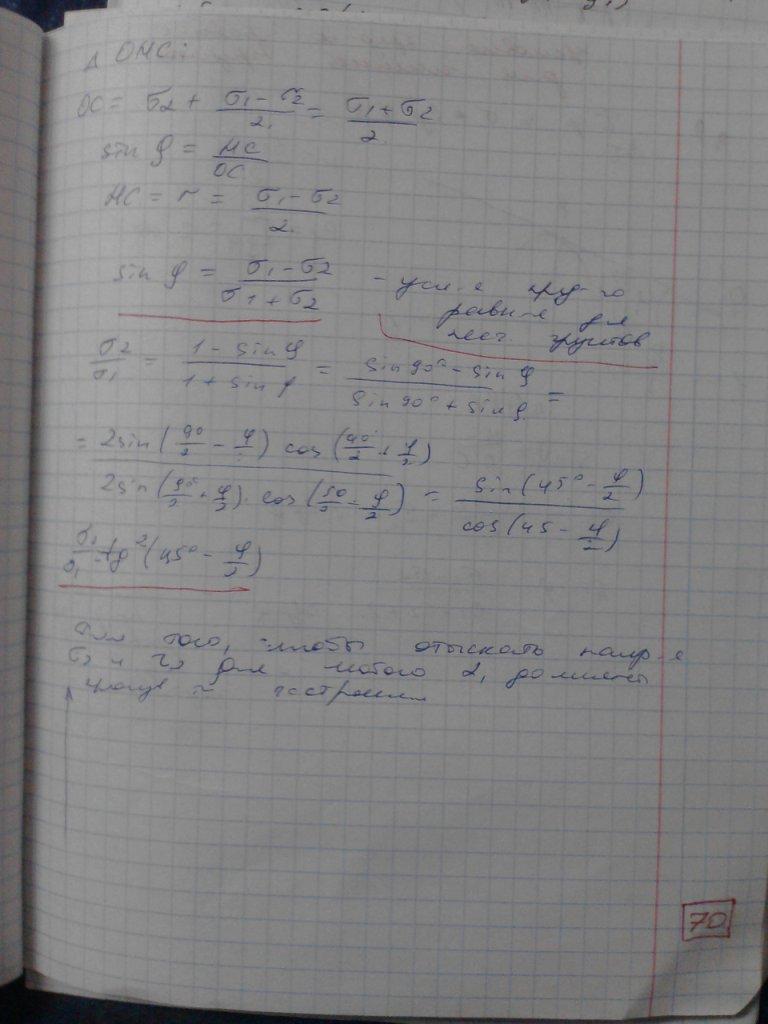 Δ ОМС:
ОС = σ2 + (σ1 − σ2)/2 = (σ1 + σ2)/2
sin φ = МС/ОС
МС = r = (σ1 − σ2)/2
sin φ = (σ1 − σ2)/(σ1 + σ2) - усл-е пред-го
равн-я для
песч грунтов
σ2/σ1 = (1 − sin φ)/(1 + sin φ) = (sin 90° − sin φ)/(sin 90° + sin φ) =
= 2sin(90/2 − φ/2) cos(90/2 + φ/2) / 2sin(90°/2 + φ/2) · cos(90/2 − φ/2) = sin(45° − φ/2)/cos(45 − φ/2)
tg²(45° − φ/2)
Для того, чтобы отыскать напр-е
для любого α, должны
построения
70